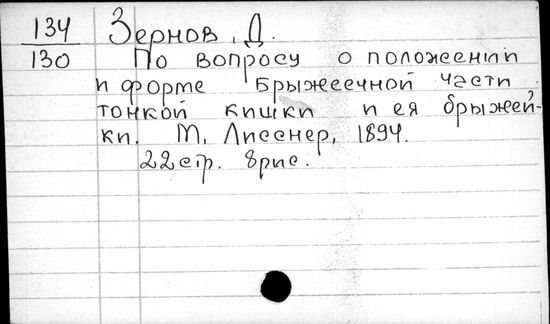 134 Зернов, Д.
130 По вопросу о положении
и форме брыжеечной части
тонкой кишки и ея брыжей-
ки. М, Лисснер, 1894.
22 стр. 8 рис.